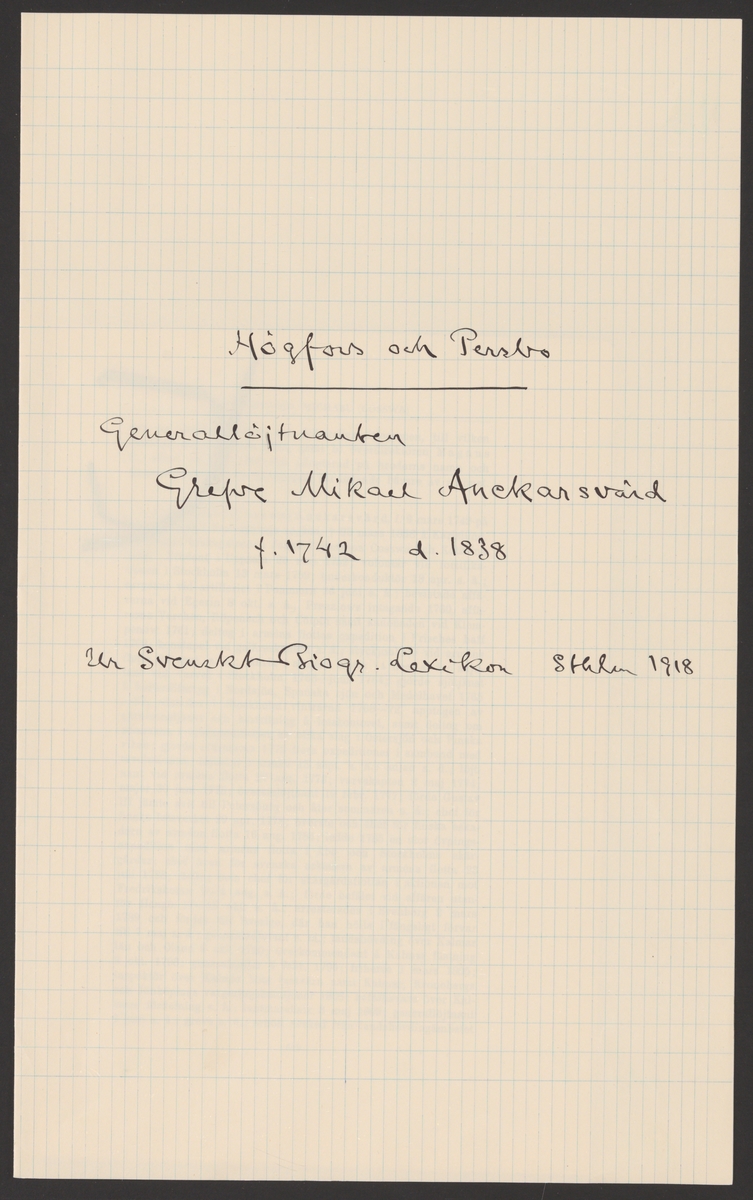 Högfors och Persbo
Generallöjtnanten
Grefve Mikael Anckarsvärd
f. 1742 d. 1838
Ur Svenskt Biogr. Lexikon Sthlm 1918